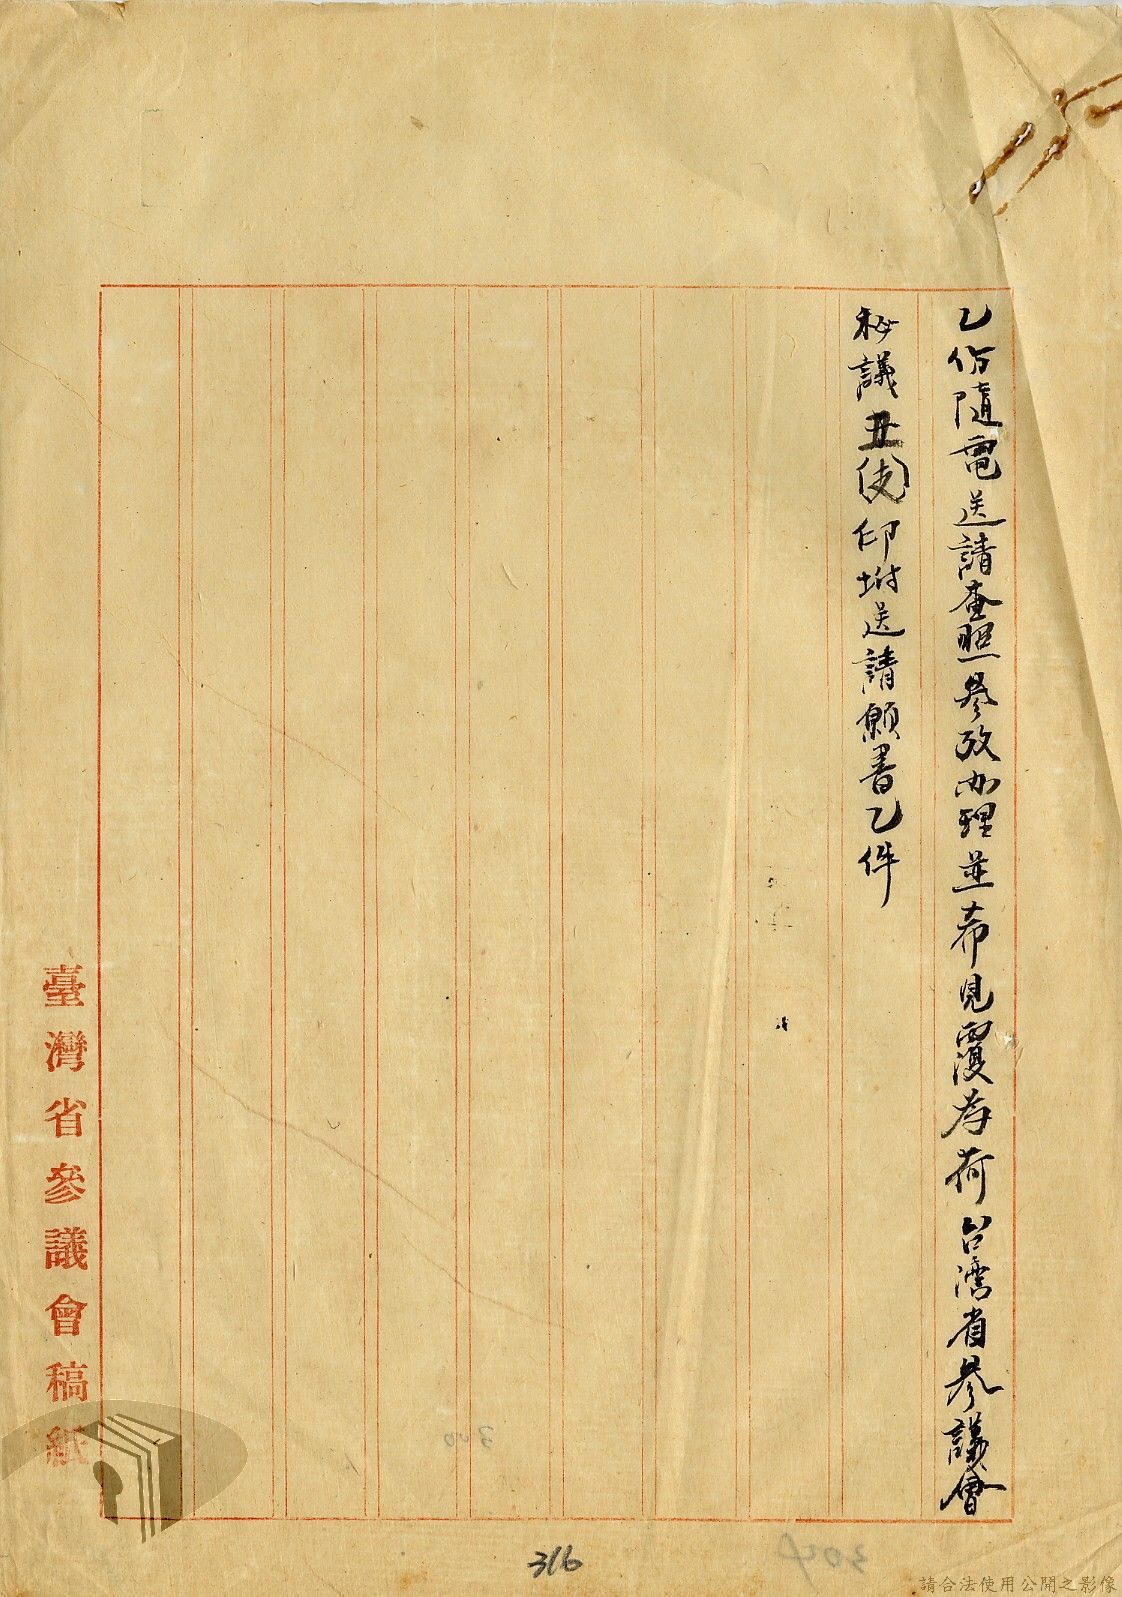 乙份隨電送請查照參攷办理並希見覆為荷台湾省參議會
秘議丑(支)印坿送請願書乙件
臺灣省參議會稿紙
316
請合法使用公開之影像